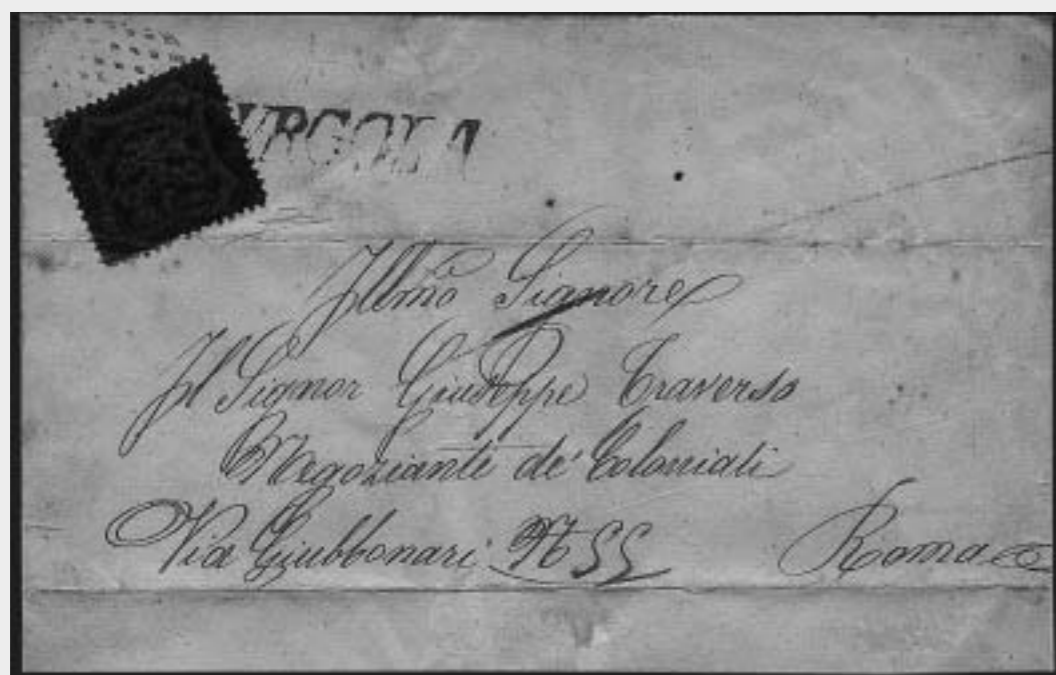 URGOLA
Illmo Signore
Il Signor Giuseppe Traverso
Negoziante de' Coloniali
Via Giubbonari N 55
Roma